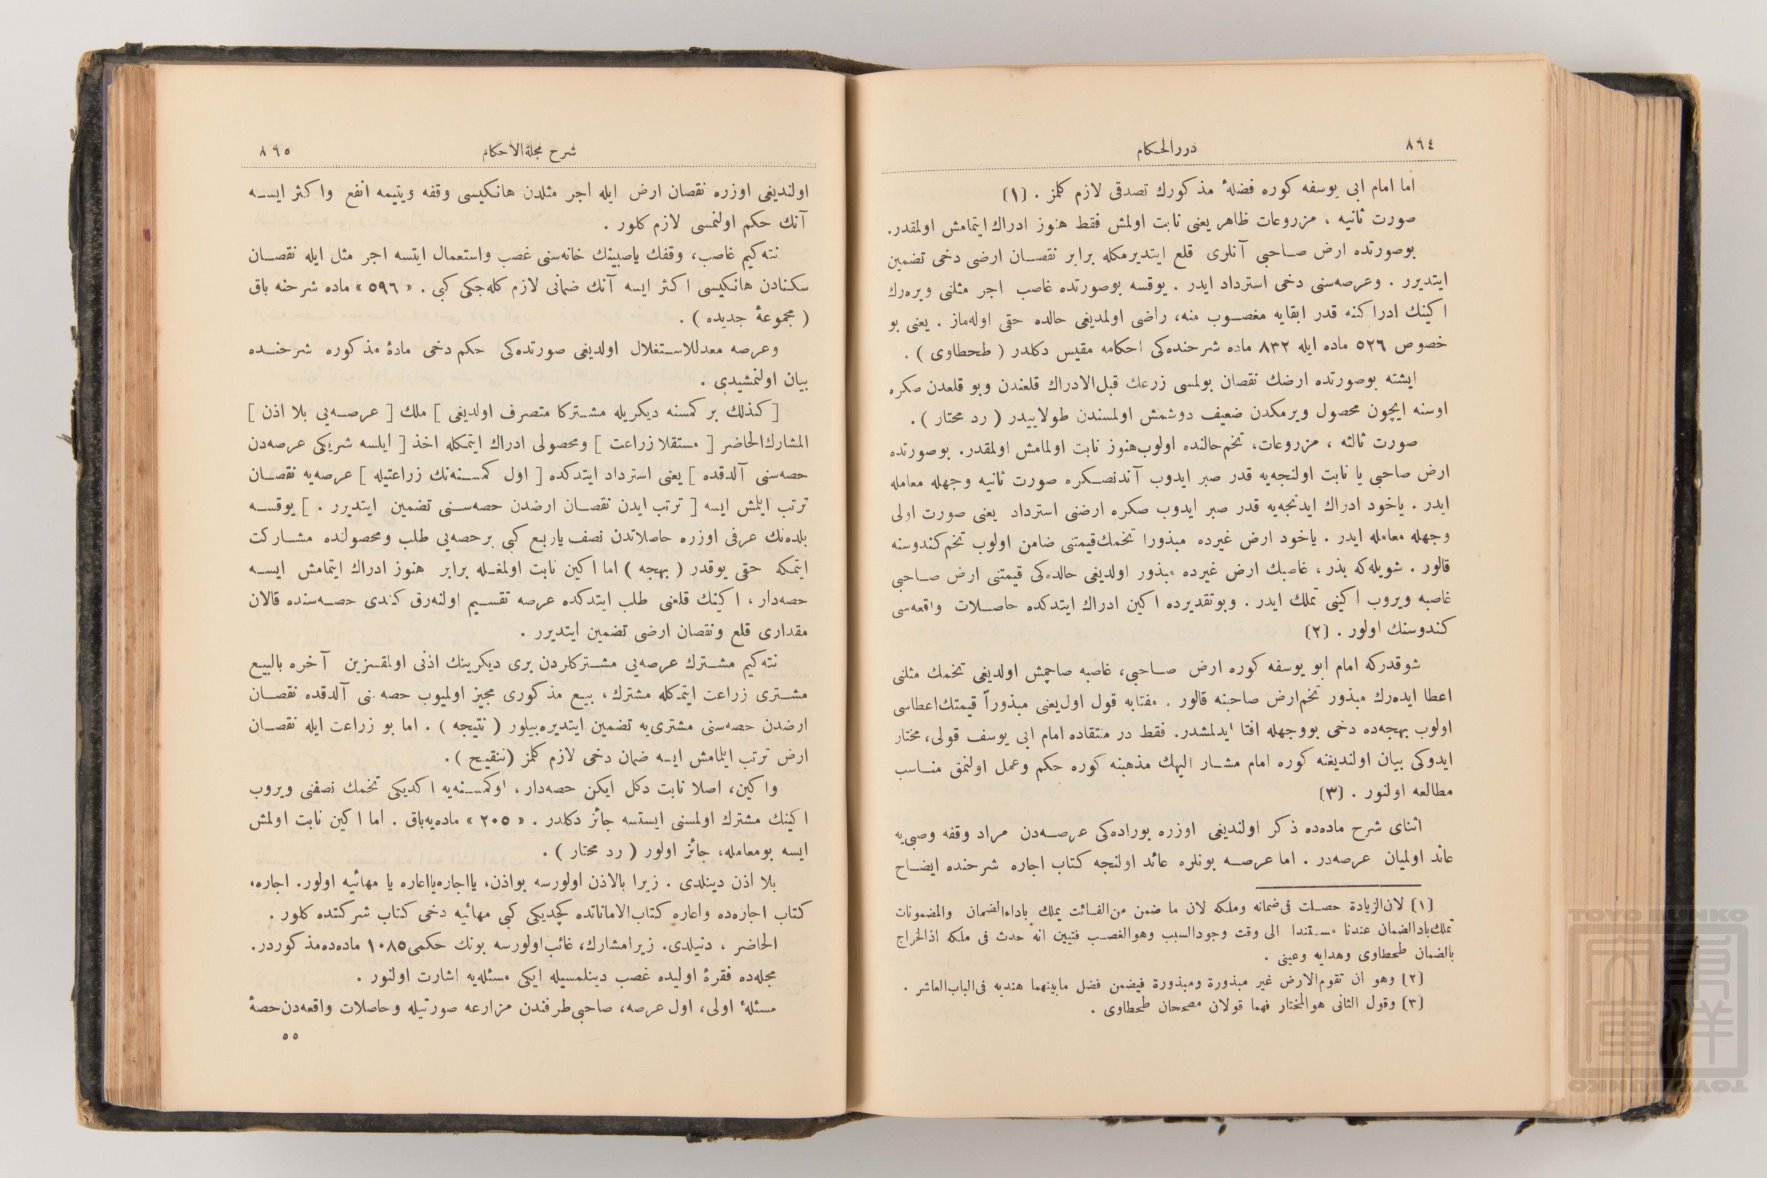 ٨٦٤
دررالحكام
اما امام ابی یوسفه کوره فضلهٔ مذکورك تصدقی لازم کلز . (١)
صورت ثانیه ، مزروعات ظاهر یعنی نابت اولمش فقط هنوز ادراك ایتمامش اولمقدر.
بوصورتده ارض صاحبی آنلری قلع ایتدیرمکله برابر نقصان ارضی دخی تضمین
ایتدیرر . وعرصه‌سنی دخی استرداد ایدر . یوقسه بوصورتده غاصب اجر مثلنی ویره‌رك
اکینك ادراکنه قدر ابقایه مغصوب منه، راضی اولمدیغی حالده حقی اوله‌ماز . یعنی بو
خصوص ٥٢٦ ماده ایله ٨٣٢ ماده شرحنده‌کی احکامه مقیس دکلدر ( طحطاوی ) .
ایشته بوصورتده ارضك نقصان بولمسی زرعك قبل‌الادراك قلعندن وبو قلعدن صکره
اوسنه ایچون محصول ویرمکدن ضعیف دوشمش اولمسندن طولاییدر ( رد محتار ) .
صورت ثالثه ، مزروعات، تخم‌حالنده اولوب‌هنوز نابت اولمامش اولمقدر. بوصورتده
ارض صاحبی یا نابت اولنجه‌یه قدر صبر ایدوب آندنصکره صورت ثانیه وجهله معامله
ایدر . یاخود ادراك ایدنجه‌یه قدر صبر ایدوب صکره ارضنی استرداد یعنی صورت اولی
وجهله معامله ایدر . یاخود ارض غیرده مبذورا تخمك‌قیمتنی ضامن اولوب تخم‌کندوسنه
قالور . شویله‌که بذر ، غاصبك ارض غیرده مبذور اولدیغی حالده‌کی قیمتنی ارض صاحبی
غاصبه ویروب اکینی تملك ایدر . وبوتقدیرده اکین ادراك ایتدکده حاصلات واقعه‌سی
کندوسنك اولور . (٢)
شوقدرکه امام ابو یوسفه کوره ارض صاحبی، غاصبه صاچمش اولدیغی تخمك مثلنی
اعطا ایده‌رك مبذور تخم‌ارض صاحبنه قالور . مفتابه قول اول‌یعنی مبذوراً قیمتك‌اعطاسی
اولوب بهجه‌ده دخی بووجهله افتا ایدلمشدر. فقط در منتقاده امام ابی یوسف قولی، مختار
ایدوکی بیان اولندیغنه کوره امام مشار الیهك مذهبنه کوره حکم وعمل اولنمق مناسب
مطالعه اولنور . (٣)
اثنای شرح ماده‌ده ذکر اولندیغی اوزره بوراده‌کی عرصه‌دن مراد وقفه وصبی‌یه
عائد اولمیان عرصه‌در . اما عرصه بونلره عائد اولنجه کتاب اجاره شرحنده ایضاح
(١) لان‌الزیادة حصلت فی‌ضمانه وملکه لان ما ضمن من‌الفائت یملك باداءالضمان والمضمونات
تملك‌باداءالضمان عندنا مستندا الی وقت وجودالسبب وهوالغصب فتبین انه حدث فی ملکه اذالخراج
بالضمان طحطاوی وهدایه وعینی .
(٢) وهو ان تقوم‌الارض غیر مبذورة ومبذورة فیضمن فضل مابینهما هندیه فی‌الباب‌العاشر .
(٣) وقول الثانی هوالمختار فهما قولان مصححان طحطاوی .
شرح مجلةالاحکام
٨٦٥
اولندیغی اوزره نقصان ارض ایله اجر مثلدن هانکیسی وقفه ویتیمه انفع واکثر ایسه
آنك حکم اولنمسی لازم کلور .
نته‌کیم غاصب، وقفك یاصبینك خانه‌سنی غصب واستعمال ایتسه اجر مثل ایله نقصان
سکنادن هانکیسی اکثر ایسه آنك ضمانی لازم کله‌جکی کبی . « ٥٩٦ » ماده شرحنه باق
( مجموعهٔ جدیده ) .
وعرصه معدللاستغلال اولدیغی صورتده‌کی حکم دخی مادهٔ مذکوره شرحنده
بیان اولنمشیدی .
[ کذلك بر کمسنه دیکریله مشترکا متصرف اولدیغی ] ملك [ عرصه‌یی بلا اذن ]
المشارك‌الحاضر [ مستقلا زراعت ] ومحصولی ادراك ایتمکله اخذ [ ایلسه شریکی عرصه‌دن
حصه‌سنی آلدقده ] یعنی استرداد ایتدکده [ اول کمسنه‌نك زراعتیله ] عرصه‌یه نقصان
ترتب ایلمش ایسه [ ترتب ایدن نقصان ارضدن حصه‌سنی تضمین ایتدیرر . ] یوقسه
بلده‌نك عرفی اوزره حاصلاتدن نصف یاربع کبی برحصه‌یی طلب ومحصولنده مشارکت
ایتمکه حقی یوقدر ( بهجه ) اما اکین نابت اولمغله برابر هنوز ادراك ایتمامش ایسه
حصه‌دار ، اکینك قلعنی طلب ایتدکده عرصه تقسیم اولنه‌رق کندی حصه‌سنده قالان
مقداری قلع ونقصان ارضی تضمین ایتدیرر .
نته‌کیم مشترك عرصه‌یی مشترکلردن بری دیکرینك اذنی اولمقسزین آخره بالبیع
مشتری زراعت ایتمکله مشترك، بیع مذکوری مجیز اولمیوب حصه‌سنی آلدقده نقصان
ارضدن حصه‌سنی مشتری‌یه تضمین ایتدیره‌بیلور ( نتیجه ) . اما بو زراعت ایله نقصان
ارض ترتب ایتمامش ایسه ضمان دخی لازم کلز (تنقیح ) .
واکین، اصلا نابت دکل ایکن حصه‌دار ، اوکمسنه‌یه اکدیکی تخمك نصفنی ویروب
اکینك مشترك اولمسنی ایستسه جائز دکلدر . « ٢٠٥ » ماده‌یه‌باق . اما اکین نابت اولمش
ایسه بومعامله، جائز اولور ( رد محتار ) .
بلا اذن دینلدی . زیرا بالاذن اولورسه بواذن، یااجاره‌یااعاره یا مهائیه اولور. اجاره،
کتاب اجاره‌ده واعاره کتاب‌الاماناتده کچدیکی کبی مهائیه دخی کتاب شرکتده کلور .
الحاضر ، دنیلدی. زیرامشارك، غائب‌اولورسه بونك حکمی١٠٨٥ ماده‌ده‌مذکوردر.
مجله‌ده فقرهٔ اولیده غصب دینلمسیله ایکی مسئله‌یه اشارت اولنور .
مسئلهٔ اولی، اول عرصه، صاحبی‌طرفندن مزارعه صورتیله وحاصلات واقعه‌دن‌حصهٔ
٥٥
TOYO BUNKO
TOYO BUNKO